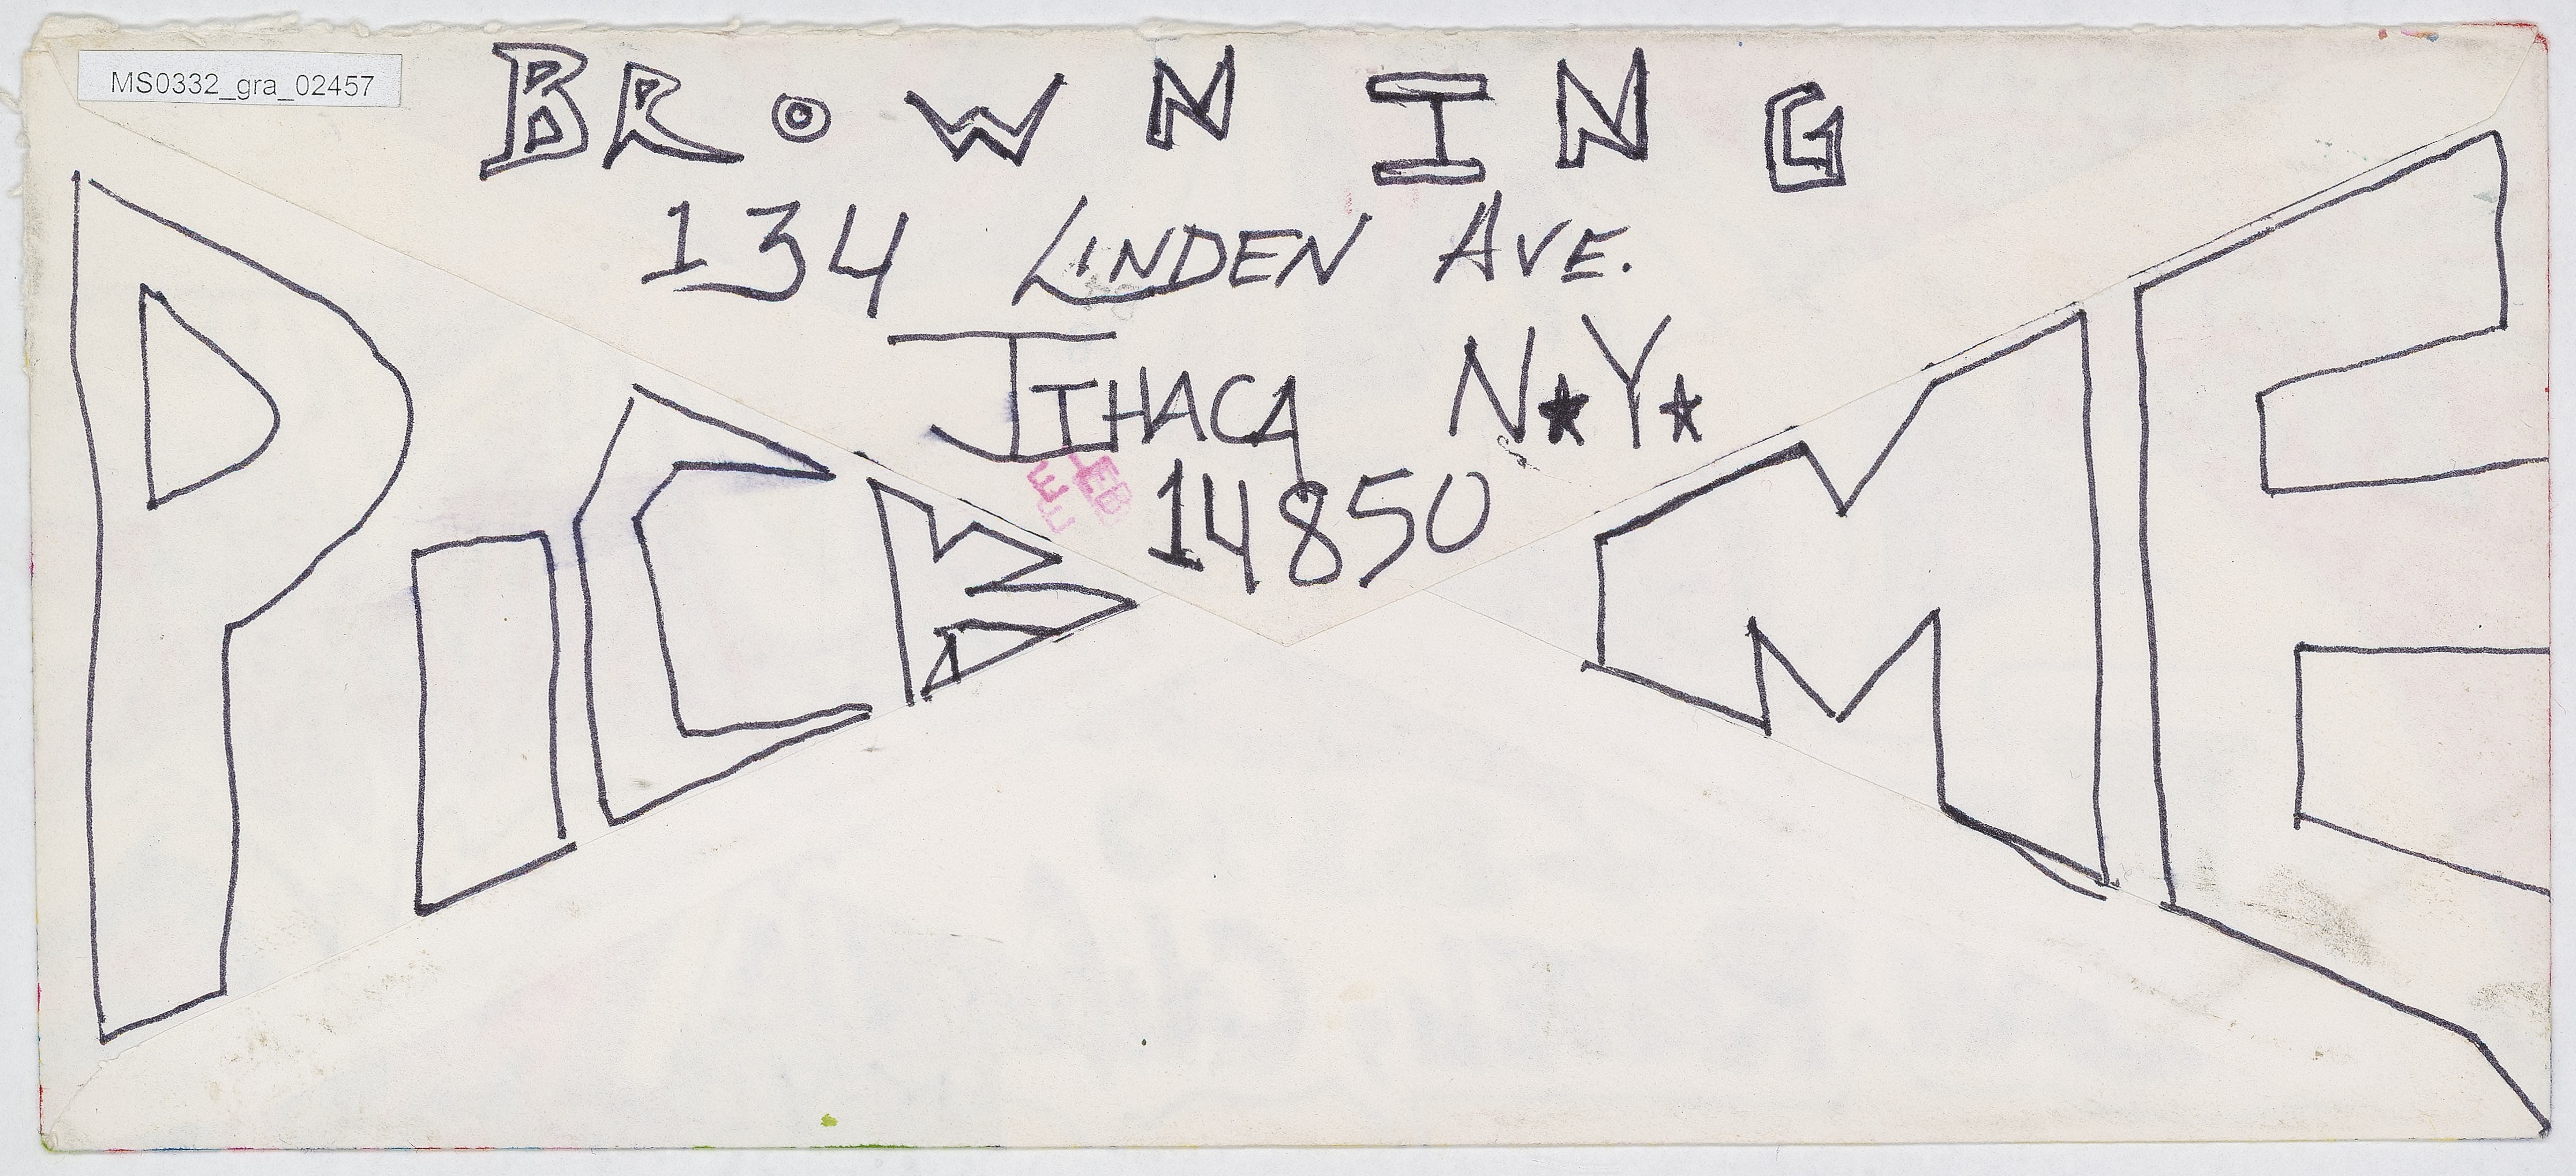 MS0332_gra_02457
BROWNING
134 LINDEN AVE.
ITHACA N★Y★
14850
PICK ME